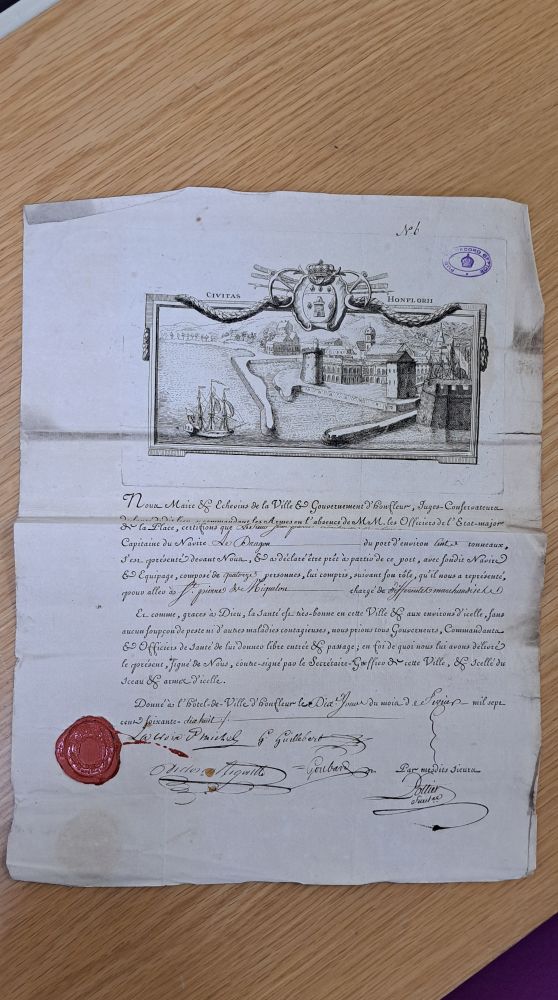 No 6
PUB RECORD OFFICE
CIVITAS HONFLORII
Nous Maire & Echevins de la Ville & Gouvernement d'honfleur, Juges-Conservateurs
de la Santé commandans les Armes en l'absence de M.M. les Officiers de l'Etat-major
de la Place, certifions que
Capitaine du Navire Le Dragon du port d'environ cent tonneaux,
s'est présenté devant Nous, & a déclaré être prêt à partir de ce port, avec sondit Navire
& Equipage, composé de quatorze personnes, lui compris, suivant son rôle, qu'il nous a représenté,
pour aller à St. pierre de Miquelon chargé de differentes marchandises
Et comme, graces à Dieu, la santé est très-bonne en cette Ville & aux environs d'icelle, sans
aucun soupçon de peste ni d'autres maladies contagieuses, nous prions tous Gouverneurs, Commandants
& Officiers de Santé de lui donner libre entrée & passage; en foi de quoi nous lui avons délivré
le présent, signé de Nous, contre-signé par le Secrétaire-Greffier de cette Ville, & scellé du
sceau & armes d'icelle.
Donné à l'hôtel-de-Ville d'honfleur le Dix Jour du mois de fevrier mil sept
cent soixante-dix huit
La Croix St michel G. Guillebert
Goubard Par mesdits sieurs